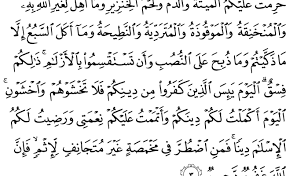 حُرِّمَتْ عَلَيْكُمُ ٱلْمَيْتَةُ وَٱلدَّمُ وَلَحْمُ ٱلْخِنزِيرِ وَمَآ أُهِلَّ لِغَيْرِ ٱللَّهِ بِهِۦ
وَٱلْمُنْخَنِقَةُ وَٱلْمَوْقُوذَةُ وَٱلْمُتَرَدِّيَةُ وَٱلنَّطِيحَةُ وَمَآ أَكَلَ ٱلسَّبُعُ إِلَّا
مَا ذَكَّيْتُمْ وَمَا ذُبِحَ عَلَى ٱلنُّصُبِ وَأَن تَسْتَقْسِمُوا۟ بِٱلْأَزْلَٰمِ ذَٰلِكُمْ
فِسْقٌ ٱلْيَوْمَ يَئِسَ ٱلَّذِينَ كَفَرُوا۟ مِن دِينِكُمْ فَلَا تَخْشَوْهُمْ وَٱخْشَوْنِ
ٱلْيَوْمَ أَكْمَلْتُ لَكُمْ دِينَكُمْ وَأَتْمَمْتُ عَلَيْكُمْ نِعْمَتِى وَرَضِيتُ لَكُمُ
ٱلْإِسْلَٰمَ دِينًا فَمَنِ ٱضْطُرَّ فِى مَخْمَصَةٍ غَيْرَ مُتَجَانِفٍ لِّإِثْمٍ فَإِنَّ
ٱللَّهَ غَفُورٌ رَّحِيمٌ ٣